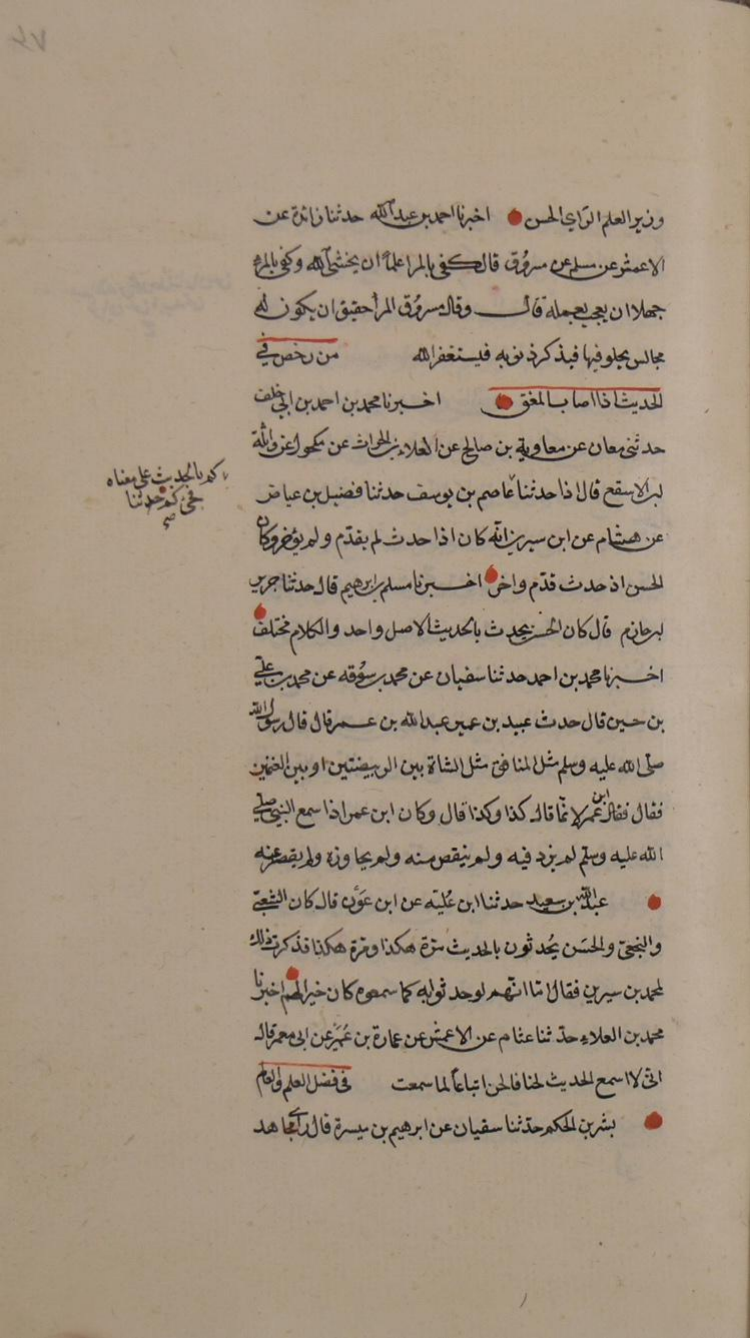 وزير العلم الراي الحسن اخبرنا احمد بن عبد الله حدثنا زائدة عن
الاعمش عن مسلم عن مسروق قال كفى بالمرا علماً ان يخشى الله وكفى بالمرء
جهلا ان يعجب بعجمله قال وقال مسروق المرأ حقيق ان يكون له
مجالس يخلو فيها فيذكر ذنوبه فيستغفر الله من رخص في
الحديث اذا اصاب المعنى اخبرنا محمد بن احمد بن ابي خلف
حدثنى معان عن معاوية بن صالح عن العلاء بن الحراث عن مكحول عن واثلة
بن الاسقع قال اذا حدثنا عاصم بن يوسف حدثنا فضيل بن عياض
كم بالحديث على معناه
فحسبكم حدثنا
صح
عن هشام عن ابن سيرين انه كان اذا حدث لم يقدم ولم يؤخر وكان
الحسن اذ حدث قدم واخر اخبرنا مسلم بن ابرهيم قال حدثنا جرير
بن حازم قال كان الحسن يحدث بالحديث الاصل واحد والكلام مختلف
اخبرنا محمد بن احمد حدثنا سفيان عن محمد بن سوقه عن محمد بن علي
بن حسين قال حدث عبيد بن عمير عبد الله بن عمر قال قال رسول الله
صلى الله عليه وسلم مثل المنافق مثل الشاة بين الربيضتين او بين الغنمين
فقال فقال ابن عمر لا انما قال كذا وكذا قال وكان ابن عمر اذا سمع النبي صلى
الله عليه وسلم لم يزد فيه ولم ينقص منه ولم يجاوزه ولم يقصر عنه
عبد الله بن سعيد حدثنا ابن علية عن ابن عون قال كان الشعبي
والنخعي والحسن يحدثون بالحديث مرة هكذا ومرة هكذا فذكرت ذلك
لمحمد بن سيرين فقال اما انهم لو حدثوا به كما سمعوه كان خيرا لهم اخبرنا
محمد بن العلاء حدثنا عثام عن الاعمش عن عمارة بن عمير عن ابى معمر قال
انى لا اسمع الحديث لحنا فالحن اتباعاً لما سمعت فى فضل العلم والعالم
بشر بن الحكم حدثنا سفيان عن ابرهيم بن ميسرة قال رأى مجاهد